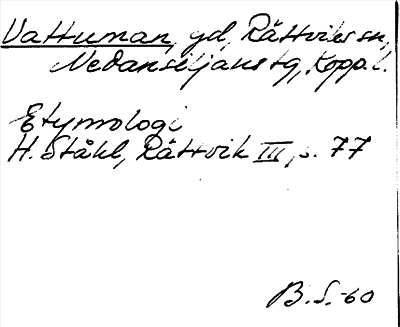 Vattuman, gd, Rättviks sn,
Nedansiljans tg, Kopp. l.
Etymologi
H. Ståhl, Rättvik III, s. 77
B.S. -60